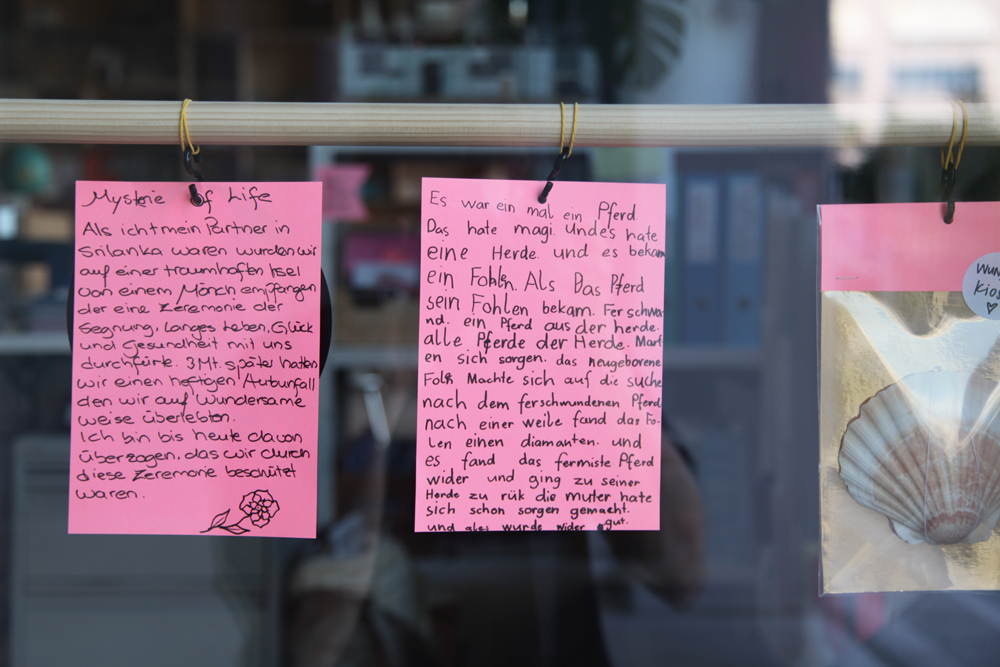 Mysterie of Life
Als ich mein Partner in
Srilanka waren wurden wir
auf einer traumhaften Isel
von einem Mönch empfangen
der eine Zeremonie der
Segnung, langes Leben, Glück
und Gesundheit mit uns
durchfürte. 3 Mt. später hatten
wir einen heftigen Autounfall
den wir auf Wundersame
weise überlebten.
Ich bin bis heute davon
überzogen, das wir durch
diese Zeremonie beschützt
waren.
Es war ein mal ein Pferd.
Das hate magi. Und es hate
eine Herde. und es bekam
ein Fohln. Als Das Pferd
sein Fohlen bekam. Fer schwa-
nd. ein Pferd aus der herde.
alle Pferde der Herde. Mart
en sich sorgen. das neugeborene
Foln Machte sich auf die suche
nach dem ferschwundenen Pferd
nach einer weile fand das Fo-
len einen diamanten. und
es fand das fermiste Pferd
wider und ging zu seiner
Herde zu rük die muter hate
sich schon sorgen gemacht.
und ales wurde wider gut.
Wun
Kios